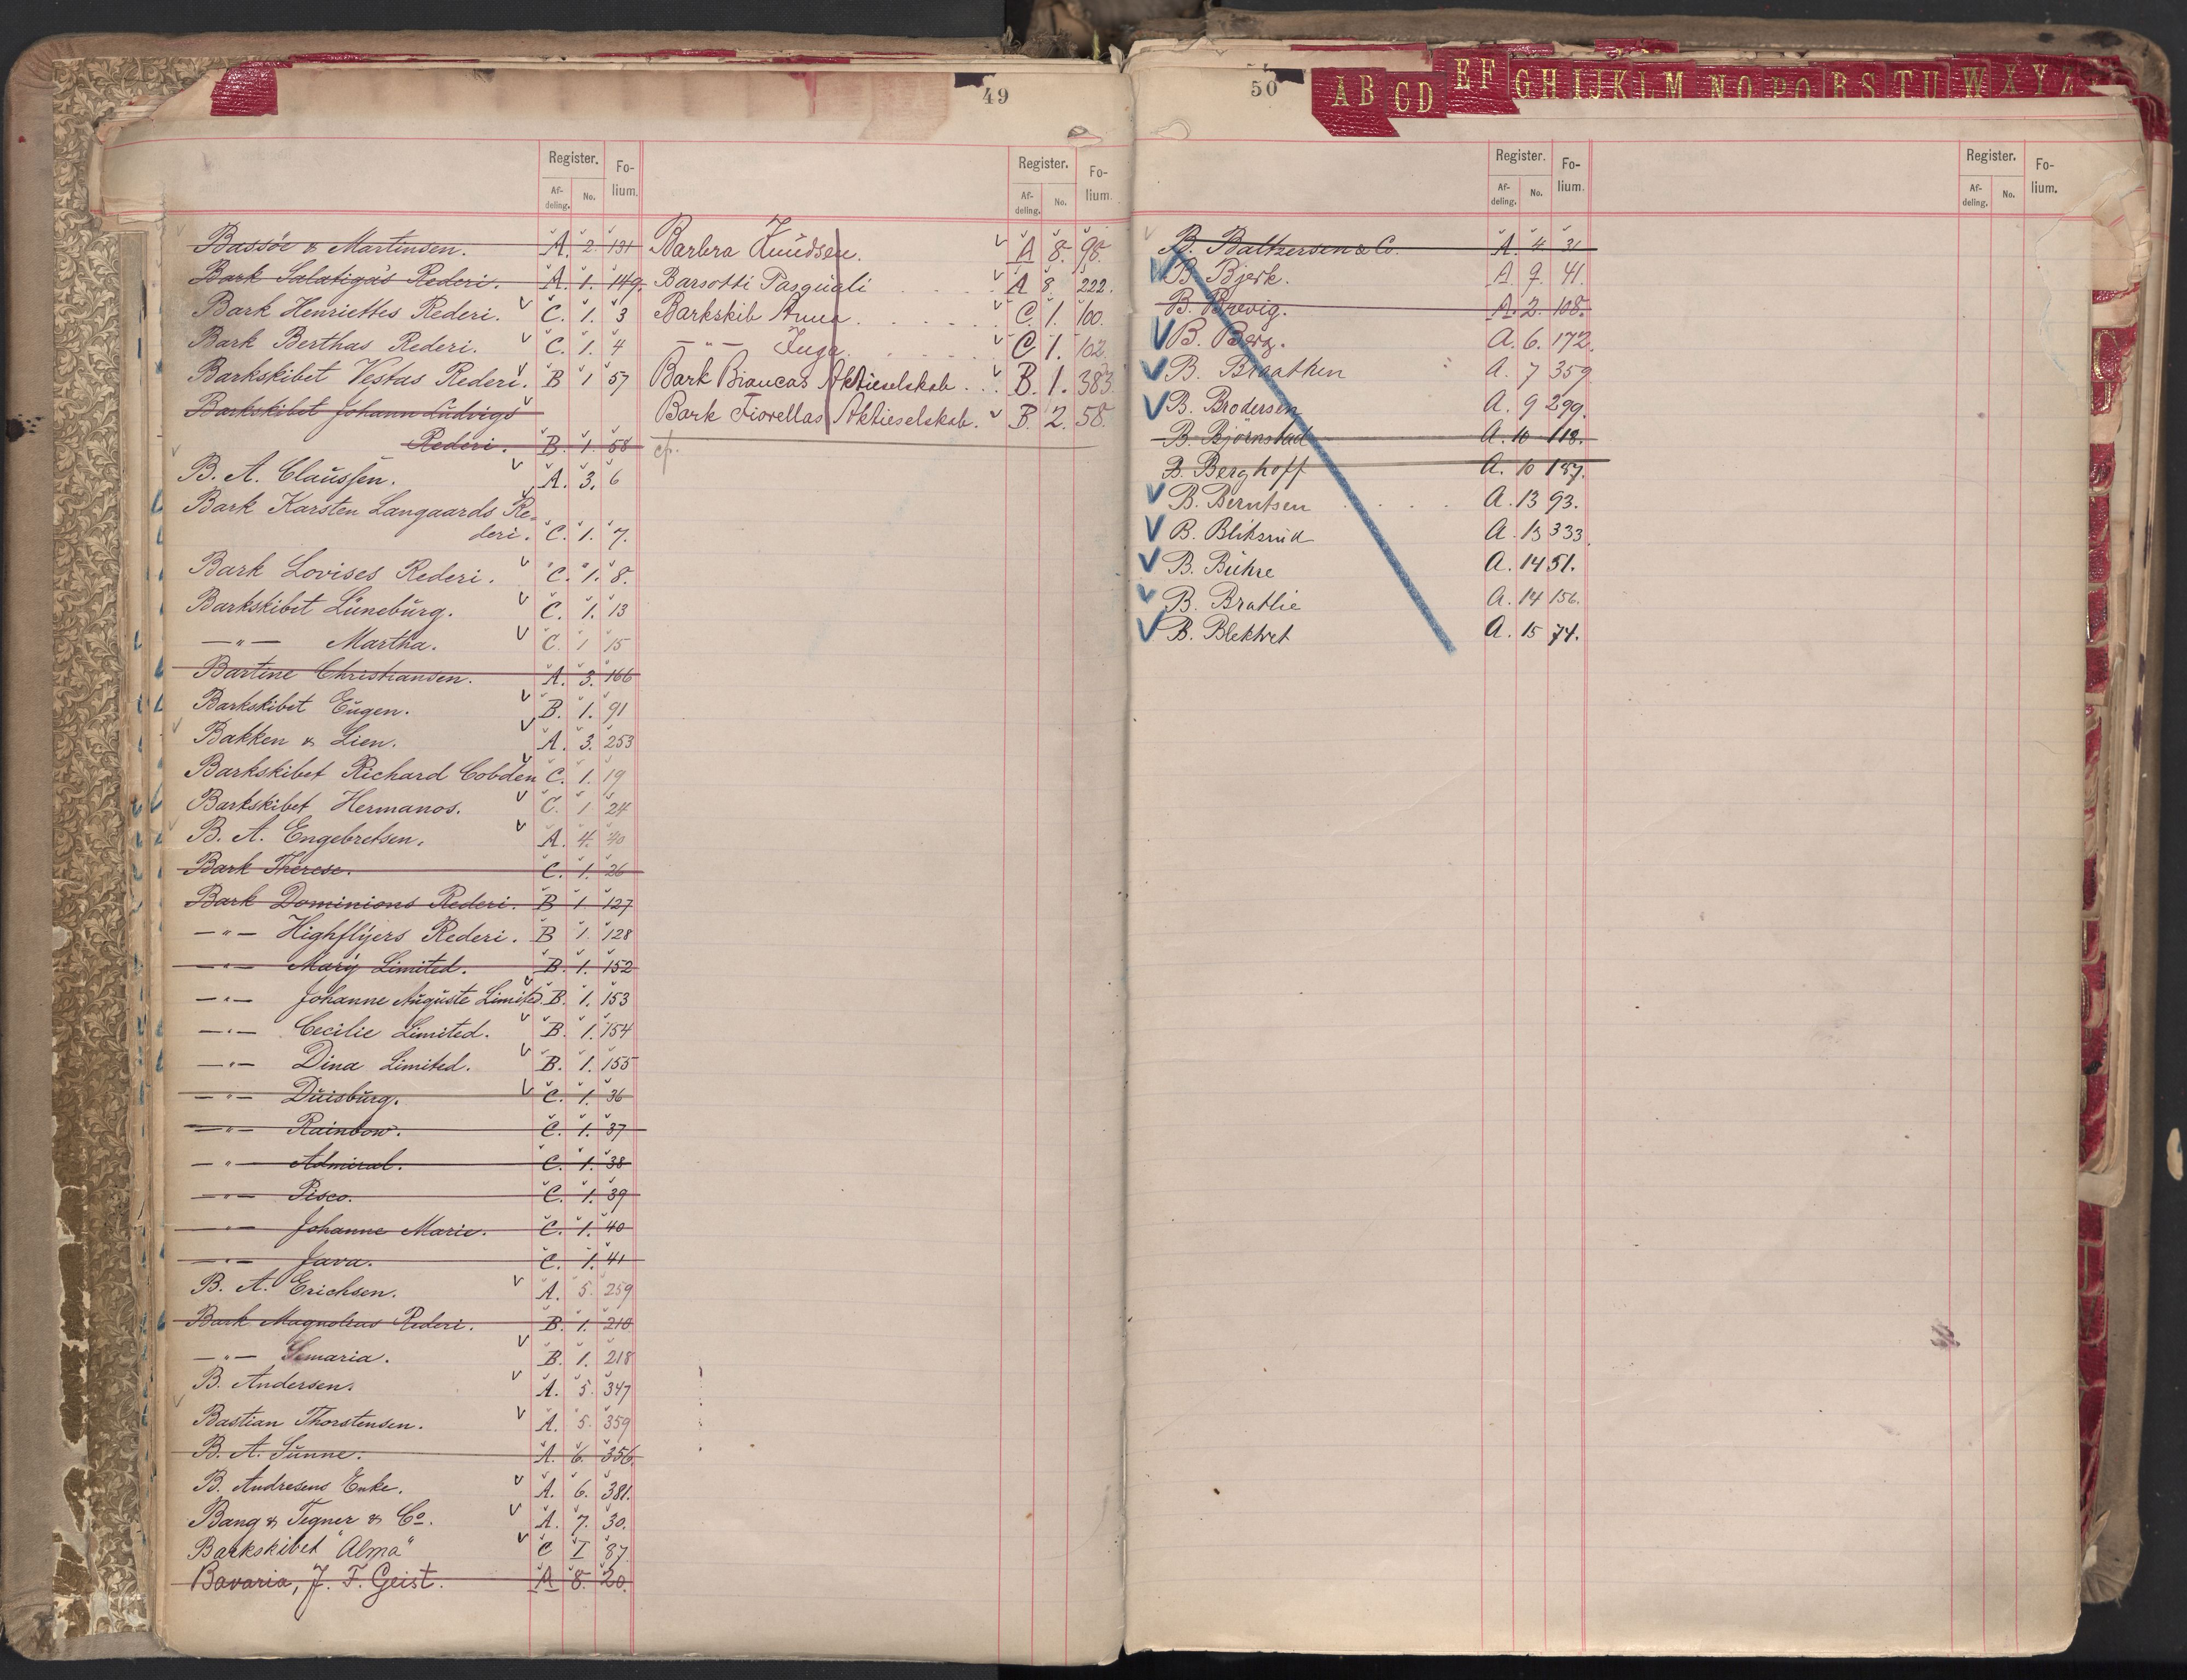 49
Register. Fo-
Af- No. lium.
deling.
Bassöe & Martinsen. A. 2. 131
Bark Salatiga's Rederi. A. 1. 149.
Bark Henriettes Rederi. C. 1. 3
Bark Berthas Rederi. C. 1. 4
Barkskibet Vestas Rederi. B 1 57
Barkskibet Johann Ludvigs
Rederi. B. 1. 58
B. A. Claussen. A. 3. 6
Bark Karsten Langaards Re-
deri. C. 1. 7.
Bark Lovises Rederi. C. 1. 8.
Barkskibet Lüneburg. C. 1. 13
—"— Martha. C. 1 15
Bartine Christiansen. A. 3. 166
Barkskibet Eugen. B. 1. 91
Bakken & Lien. A. 3. 253
Barkskibet Richard Cobden C. 1. 19
Barkskibet Hermanos. C. 1 24
B. A. Engebretsen. A. 4. 40
Bark Therese. C. 1. 26
Bark Dominions Rederi. B 1. 127
—"— Highflyers Rederi. B 1. 128
—"— Mary Limited. B. 1. 152
—"— Johanne Auguste Limited. B. 1. 153
—"— Cecilie Limited. B. 1. 154
—"— Dina Limited. B. 1. 155
—"— Duisburg. C. 1. 36
—"— Rainbow. C. 1. 37
—"— Admiral. C. 1. 38
—"— Pisco. C. 1. 39
—"— Johanne Marie. C. 1. 40
—"— Java. C. 1. 41
B. A. Erichsen. A. 5. 259
Bark Magnolias Rederi. B. 1. 210
—"— Semaria. B. 1. 218
B. Andersen. A. 5. 347
Bastian Thorstensen. A. 5. 359
B. A. Sunne. A. 6. 356.
B. Andresens Enke. A. 6. 381.
Bang & Tegner & Co. A. 7. 30.
Barkskibet "Alma" C I 87
Bavaria, J. F. Geist. A 8. 20.
Register. Fo-
Af- No. lium.
deling.
Barbra Knudsen. A 8. 98.
Barsotti Pasquali A 8. 222.
Barkskib Anna C. 1. 100.
—"— Inga. C. 1. 102
Bark Biancas Aktieselskab. B. 1. 383.
Bark Fiorellas Aktieselskab. B. 2. 58.
cfr.
50
A B C D E F G H I J K L M N O P Q R S T U W X Y Z
Register. Fo-
Af- No. lium.
deling.
B. Baltzersen & Co. A. 4 31
B. Bjerk. A 9. 41.
B. Brevig. A. 2. 108.
B. Berg. A. 6. 172.
B. Braathen A. 7 359
B. Brodersen A. 9 299.
B. Björnstad A. 10 118.
B. Berghoff A. 10 187.
B. Berntsen A. 13 93.
B. Bliksrud A. 13 333.
B. Buhre A. 14 51.
B. Bratlie A. 14 156.
B. Blektvet A. 15 74.
Register. Fo-
Af- No. lium.
deling.